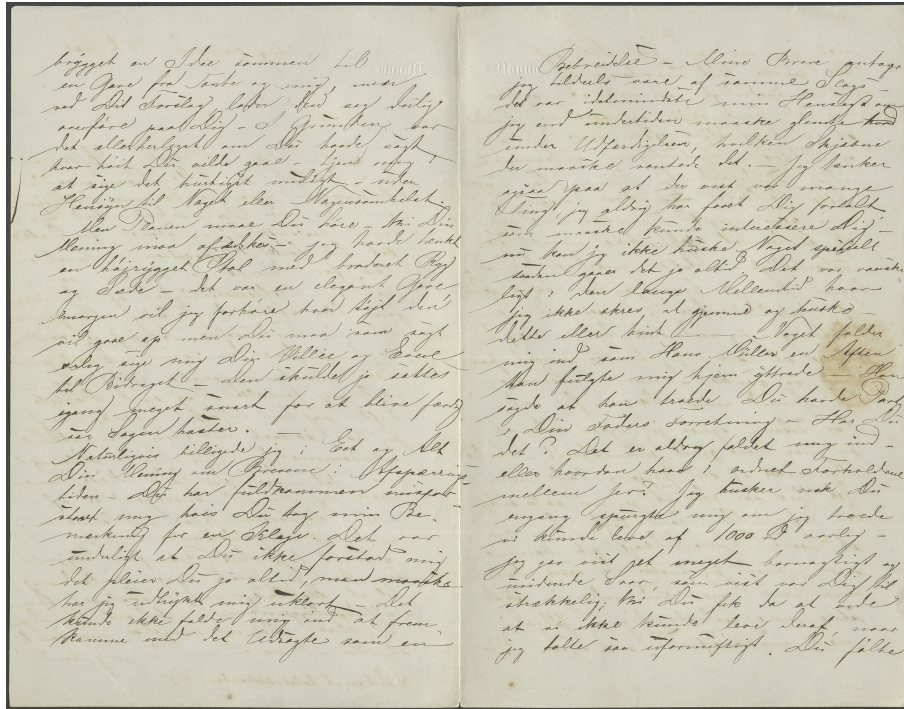 brygget en Idee sammen til
en Gave fra Tante og mig, men
ved Dit Forslag lader det sig deilig
overføre paa Dig – I Grunden var
det allerhelst om Du havde sagt
hvor høit Du vilde gaae – hjem mig
at sige det hurtigst muligt – uden
Hensyn til Noget eller Nogensomhelst.
Men Planen maae Du høre – thi Din
Mening maa – jeg havde tænkt
en højrygget Stol med broderet Ryg
og Sæde – det var en elegant Gave
imorgen vil jeg forhøre hvad højt den
vil gaae op men Du maa som sagt
sige mig Din Villie og Evne
til Bidraget – den skulde jo sættes
igang meget snart for at blive færdig
saa Sagen haster. —
Naturligvis billigede jeg i Eet og Alt
Din Mening om Brevene i
tiden – Du har fuldkommen misfor
staaet mig hvis Du tog min Be-
mærkning for en Klage. Det var
underligt at Du ikke forstod mig
det pleier Du jo altid, men maaske
har jeg udtrykt mig uklart – Det
kunde ikke falde mig ind at frem
komme med det Udsagte som en
Bebreidelse – Mine Breve antager
jeg tildeels vare af samme Slags
det var idetmindste min Hensigt om
jeg end undertiden maaske glemte
under Udfærdigelsen, hvilken Skjæbne
der maaske ventede det. — Jeg tænker
ogsaa paa at der vist var mange
Ting jeg aldrig har faaet Dig fortalt
som maaske kunde interessere Dig –
nu kan jeg ikke huske Noget specielt
saadan gaaer det jo altid. Det var vanske
ligt i den lange Mellemtid hvor
jeg ikke skrev at gjemme og huske
dette eller hint — Noget falder
mig ind som Hans Møller en Aften
han fulgte mig hjem yttrede — Han
sagde at han troede Du havde Part
i Din Faders Forretning – Har Du
det? Det er aldrig faldet mig ind –
eller hvordan have I ordnet Forholdene
mellem Jer? Jeg husker nok Du
engang spurgte mig om jeg troede
vi kunde leve af 1000 aarlig –
jeg gav vist et meget barnagtigt og
uvidende Svar som vist var Dig til
strækkelig; thi Du fik da at vide
at vi ikke kunde leve deraf, naar
jeg talte saa ufornuftigt. Du følte